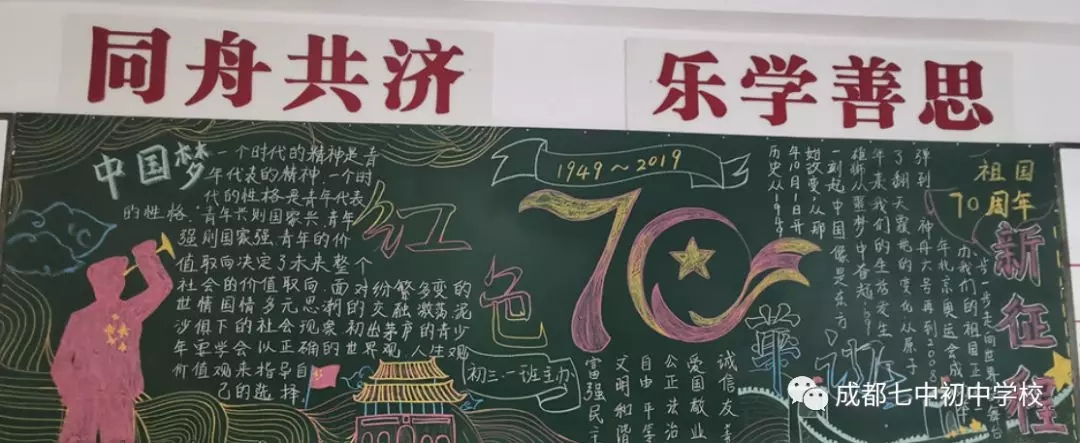 同舟共济
乐学善思
中国梦
一个时代的精神是青
年代表的精神,一个时
代的性格是青年代表
的性格,青年兴则国家兴,青年
强则国家强,青年的价
值取向决定了未来整个
社会的价值取向,面对纷繁多变的
世情国情多元思潮的交融激荡,泥
沙俱下的社会现象,初出茅庐的青少
年要学会以正确的世界观,人生观
价值观来指导自
己的选择。
红色
初三·一班主办
1949~2019
70
祖国
70周年
新征程
历史从194
年10月1日开
始改变,从那
一刻起,中国像是东方
雄狮从噩梦中奋起,69
年来,我们的生活发生
了翻天覆地的变化,从原子
弹到
神舟六号再到2008
年北京奥运会成
办,我们的祖国正
一步一步走向世界
华诞
诚信友善
爱国敬业
公正法治
自由平等
文明和谐
富强民主
成都七中初中学校